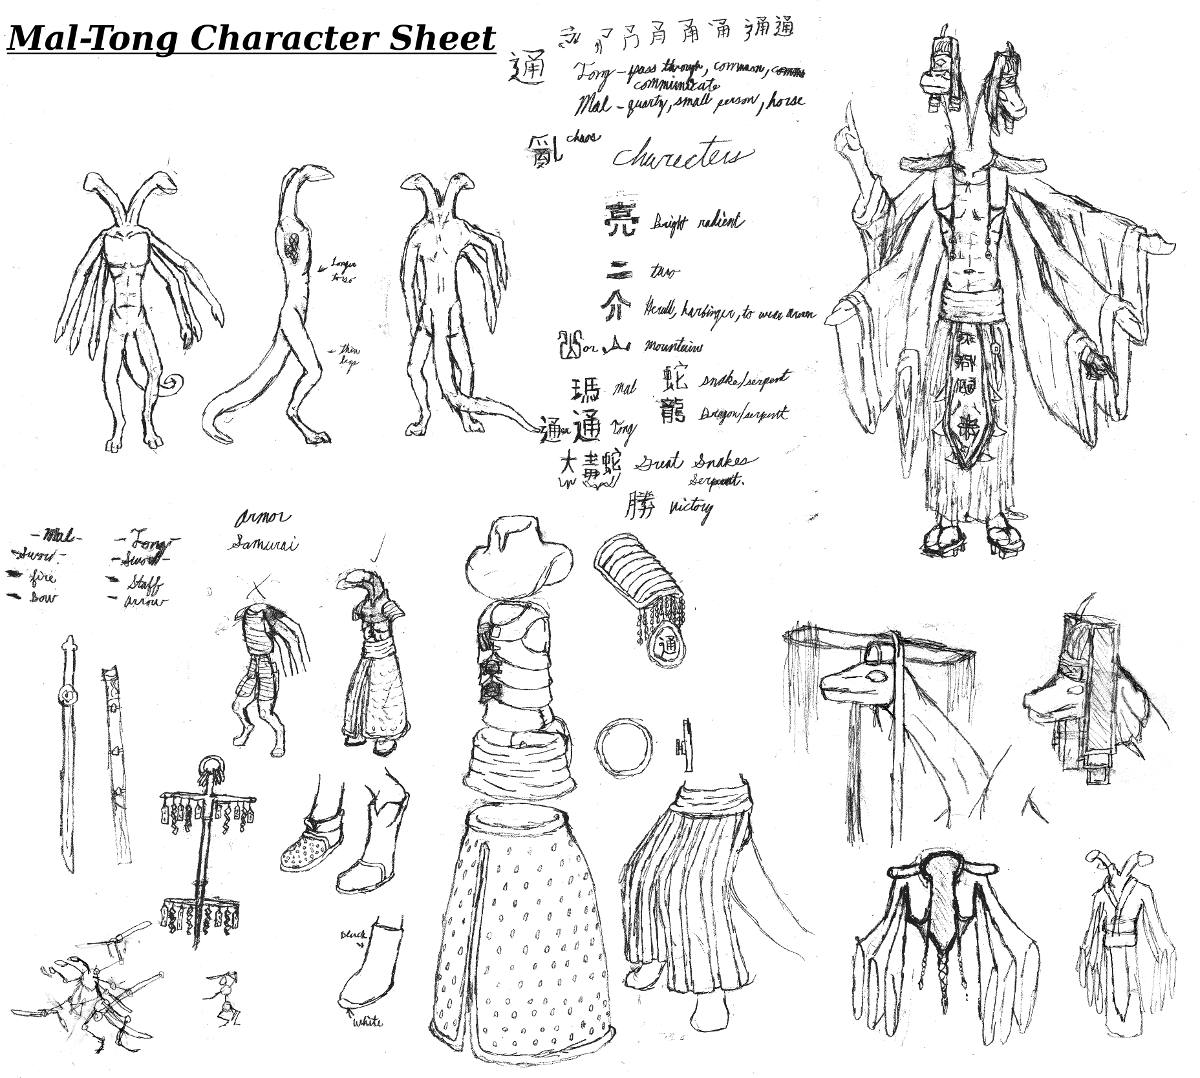 Mal-Tong Character Sheet
通
通 通
Tong - pass through, common, comm
communicate
Mal - quarty, small person, horse
亂 chaos
Characters
亮 Bright radient
二 two
介 Herull, harbinger, to wear armor
or mountain
瑪 Mal 蛇 snake/serpent
通 or 通 Tong 龍 Dragon/serpent
大毒蛇 Great Snakes
Serpent.
勝 Victory
Longer
torso
thin
legs
- Mal -
- Sword -
- fire
- Bow
- Tong -
- Sword -
- Staff
- arrow
Armor
Samurai
通
black
white